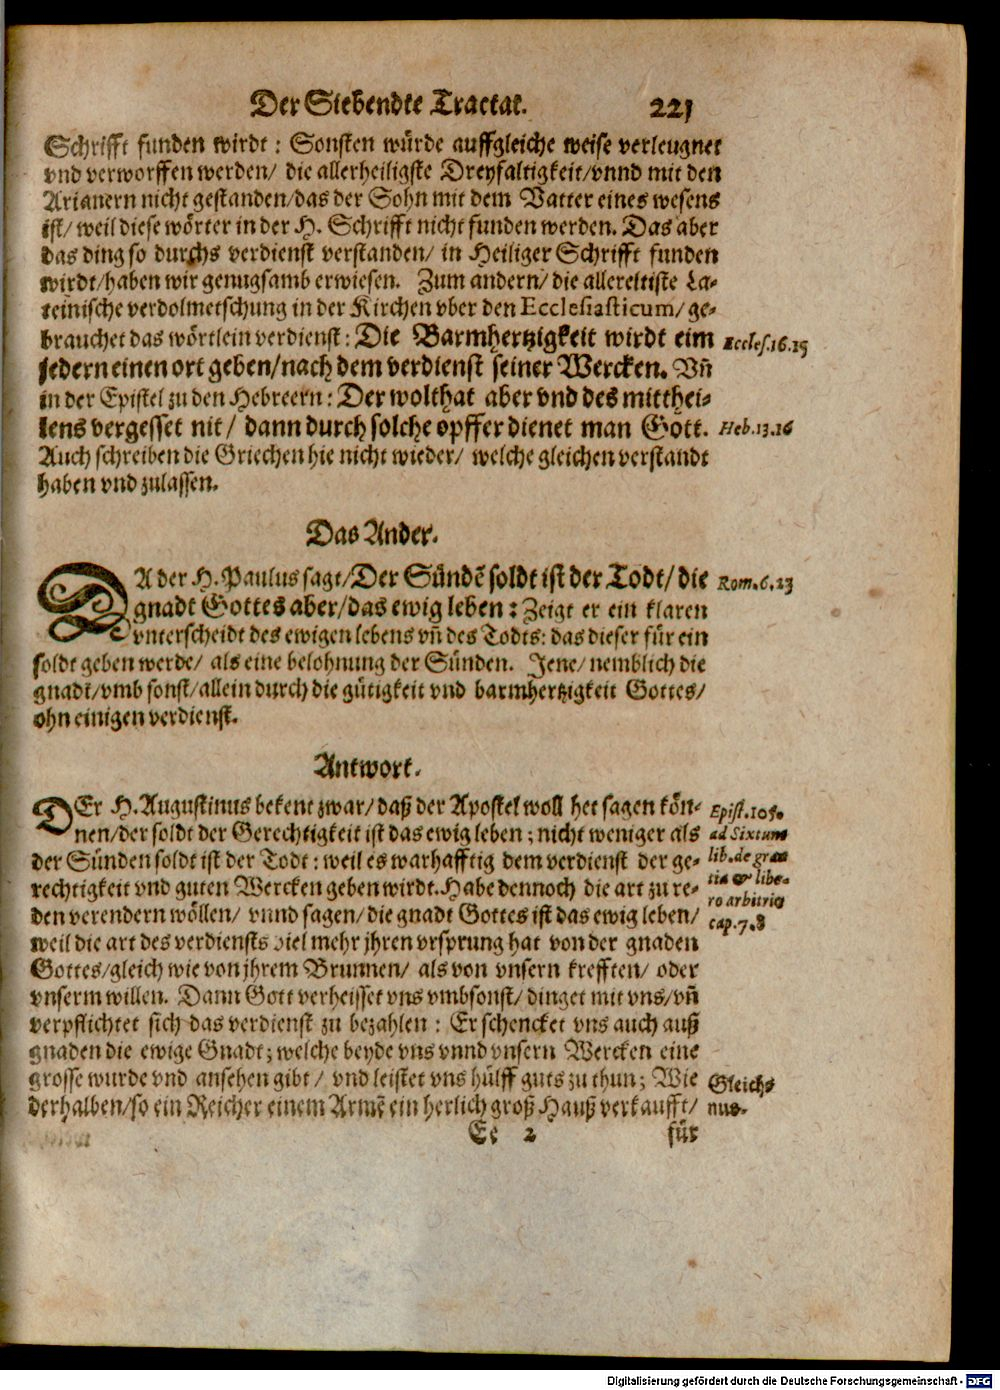 Der Siebendte Tractat. 221
Schrifft funden wirdt: Sonsten würde auffgleiche weise verleugnet
vnd verworffen werden/ die allerheiligste Dreyfaltigkeit/vnnd mit den
Arianern nicht gestanden/das der Sohn mit dem Vatter eines wesens
ist/ weil diese wörter in der H. Schrifft nicht funden werden. Das aber
das ding so durchs verdienst verstanden/ in Heiliger Schrifft funden
wirdt/haben wir genugsamb erwiesen. Zum andern/ die allereltiste La-
teinische verdolmetschung in der Kirchen vber den Ecclesiasticum/ ge-
brauchet das wörtlein verdienst: Die Barmhertzigkeit wirdt eim
Eccles.16.15
jedern einen ort geben/nach dem verdienst seiner Wercken. Vñ
in der Epistel zu den Hebreern: Der wolthat aber vnd des mitthei-
lens vergesset nit/ dann durch solche opffer dienet man Gott.
Heb.13.16
Auch schreiben die Griechen hie nicht wieder/ welche gleichen verstandt
haben vnd zulassen.
Das Ander.
DA der H. Paulus sagt/Der Sündẽ soldt ist der Todt/ die
Rom.6.23
gnadt Gottes aber/das ewig leben: Zeigt er ein klaren
vnterscheidt des ewigen lebens vñ des Todts: das dieser für ein
soldt geben werde/ als eine belohnung der Sünden. Jene/ nemblich die
gnadt/vmb sonst/allein durch die gütigkeit vnd barmhertzigkeit Gottes/
ohn einigen verdienst.
Antwort.
DEr H. Augustinus bekent zwar/daß der Apostel woll het sagen kön-
nen/der soldt der Gerechtigkeit ist das ewig leben; nicht weniger als
der Sünden soldt ist der Todt: weil es warhafftig dem verdienst der ge-
rechtigkeit vnd guten Wercken geben wirdt. Habe dennoch die art zu re-
den verendern wöllen/ vnnd sagen/ die gnadt Gottes ist das ewig leben/
Epist.105.
ad Sixtum
lib.de gra
tia & libe-
ro arbitrio
cap.7.8
weil die art des verdiensts viel mehr jhren vrsprung hat von der gnaden
Gottes/gleich wie von jhrem Brunnen/ als von vnsern krefften/ oder
vnserm willen. Dann Gott verheisset vns vmbsonst/ dinget mit vns/ vñ
verpflichtet sich das verdienst zu bezahlen: Er schencket vns auch auß
gnaden die ewige Gnadt; welche beyde vns vnnd vnsern Wercken eine
grosse wurde vnd ansehen gibt/ vnd leistet vns hülff guts zu thun; Wie
derhalben/so ein Reicher einem Armẽ ein herlich groß Hauß verkaufft/
Gleichs
nus.
Ee 2 für
Digitalisierung gefördert durch die Deutsche Forschungsgemeinschaft - DFG